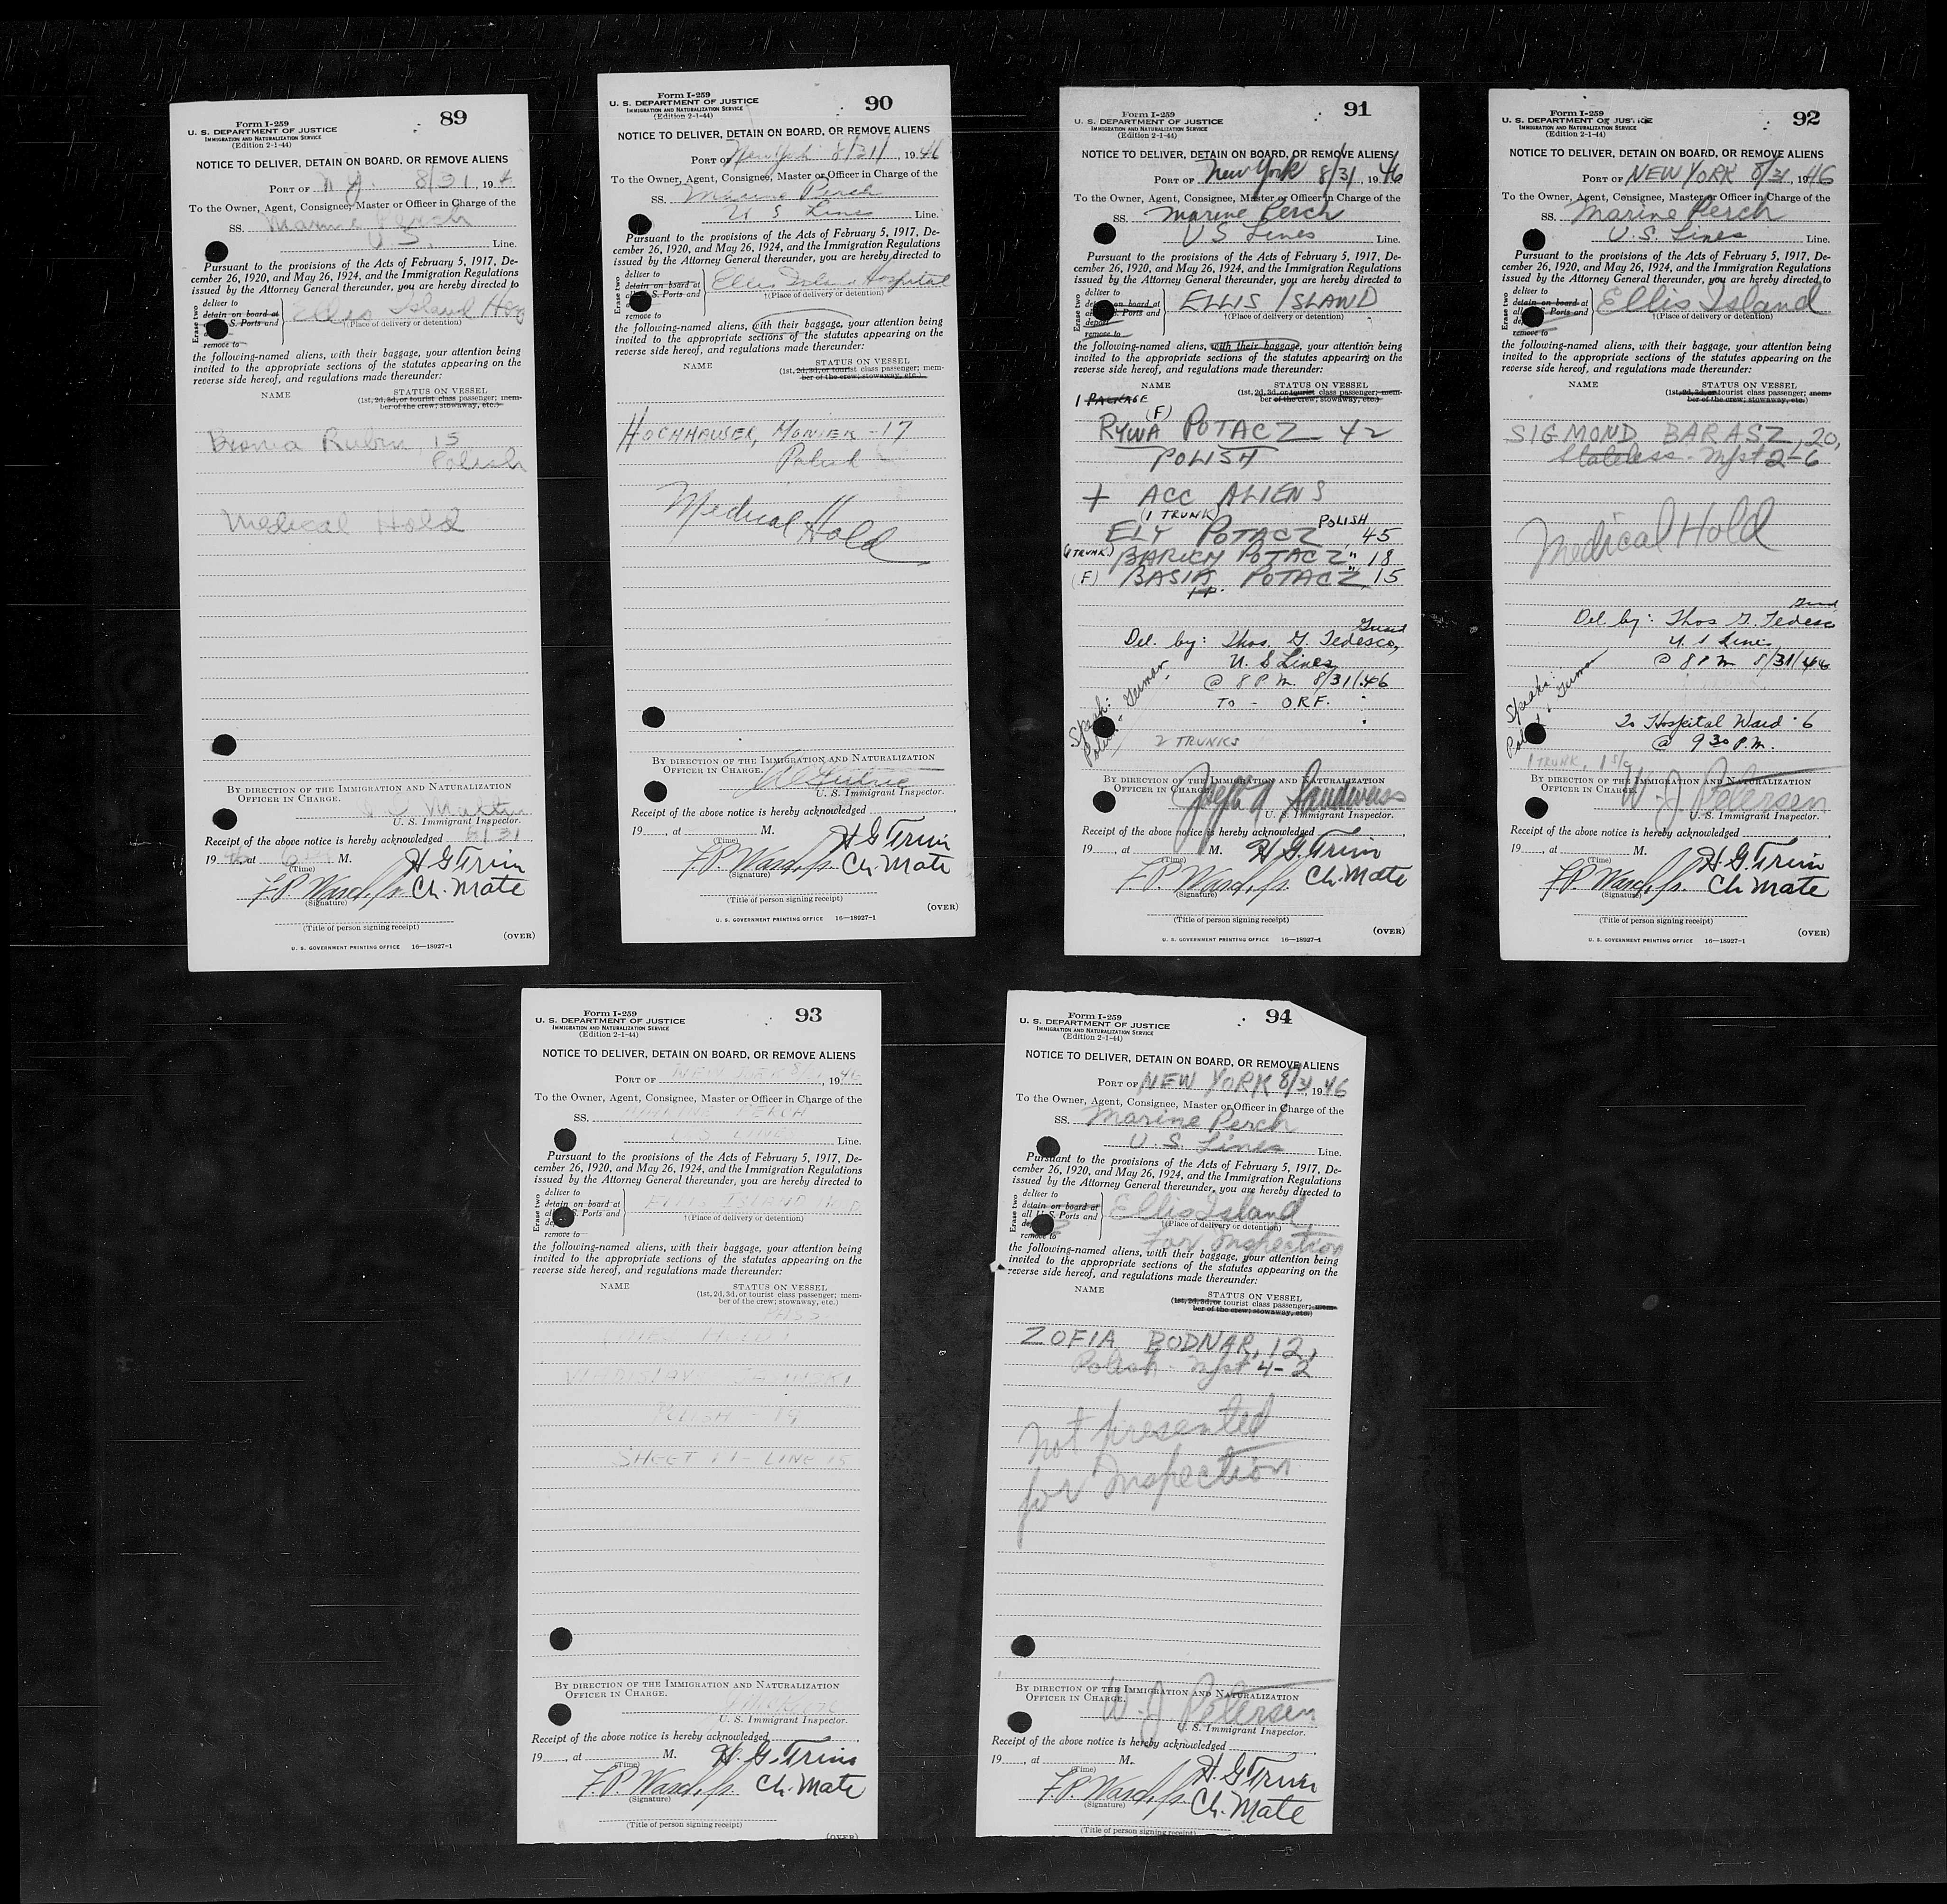 Form I-259
U. S. DEPARTMENT OF JUSTICE
IMMIGRATION AND NATURALIZATION SERVICE
(Edition 2-1-44)
89
NOTICE TO DELIVER, DETAIN ON BOARD, OR REMOVE ALIENS
PORT OF N.Y. 8/31, 194
To the Owner, Agent, Consignee, Master or Officer in Charge of the
SS. Marine Perch
U.S. Line.
Pursuant to the provisions of the Acts of February 5, 1917, De-
cember 26, 1920, and May 26, 1924, and the Immigration Regulations
issued by the Attorney General thereunder, you are hereby directed to
Erase two
deliver to
detain on board at
S. Ports and
remove to
Ellis Island Hosp
†(Place of delivery or detention)
the following-named aliens, with their baggage, your attention being
invited to the appropriate sections of the statutes appearing on the
reverse side hereof, and regulations made thereunder:
NAME STATUS ON VESSEL
(1st, 2d, 3d, or tourist class passenger; mem-
ber of the crew; stowaway, etc.)
Bronia Rubin, 15
Polish
Medical Hold
BY DIRECTION OF THE IMMIGRATION AND NATURALIZATION
OFFICER IN CHARGE.
U. S. Immigrant Inspector.
Receipt of the above notice is hereby acknowledged 8/31
19 46 at 6 M.
(Time)
H G Trim
F.P. Ward, Jr. Ch. Mate
(Signature)
(Title of person signing receipt)
(OVER)
U. S. GOVERNMENT PRINTING OFFICE 16—18927-1
Form I-259
U. S. DEPARTMENT OF JUSTICE
IMMIGRATION AND NATURALIZATION SERVICE
(Edition 2-1-44)
90
NOTICE TO DELIVER, DETAIN ON BOARD, OR REMOVE ALIENS
PORT OF New York 8/31/, 1946
To the Owner, Agent, Consignee, Master or Officer in Charge of the
SS. Marine Perch
U S Lines Line.
Pursuant to the provisions of the Acts of February 5, 1917, De-
cember 26, 1920, and May 26, 1924, and the Immigration Regulations
issued by the Attorney General thereunder, you are hereby directed to
Erase two
deliver to
detain on board at
all S. Ports and
remove to
Ellis Island Hospital
†(Place of delivery or detention)
the following-named aliens, with their baggage, your attention being
invited to the appropriate sections of the statutes appearing on the
reverse side hereof, and regulations made thereunder:
NAME STATUS ON VESSEL
(1st, 2d, 3d, or tourist class passenger; mem-
ber of the crew; stowaway, etc.)
HOCHHAUSER, MONIEK -17
Polish
Medical Hold
BY DIRECTION OF THE IMMIGRATION AND NATURALIZATION
OFFICER IN CHARGE.
U. S. Immigrant Inspector.
Receipt of the above notice is hereby acknowledged
19 , at M.
(Time)
H G Trim
F.P. Ward, Jr. Ch. Mate
(Signature)
(Title of person signing receipt)
(OVER)
U. S. GOVERNMENT PRINTING OFFICE 16—18927-1
Form I-259
U. S. DEPARTMENT OF JUSTICE
IMMIGRATION AND NATURALIZATION SERVICE
(Edition 2-1-44)
91
NOTICE TO DELIVER, DETAIN ON BOARD, OR REMOVE ALIENS
PORT OF New York 8/31 1946
To the Owner, Agent, Consignee, Master or Officer in Charge of the
SS. Marine Perch
US Lines Line.
Pursuant to the provisions of the Acts of February 5, 1917, De-
cember 26, 1920, and May 26, 1924, and the Immigration Regulations
issued by the Attorney General thereunder, you are hereby directed to
Erase two
deliver to
detain on board at
S. Ports and
deport
remove to
ELLIS ISLAND
†(Place of delivery or detention)
the following-named aliens, with their baggage, your attention being
invited to the appropriate sections of the statutes appearing on the
reverse side hereof, and regulations made thereunder:
NAME STATUS ON VESSEL
(1st, 2d, 3d, or tourist class passenger; mem-
ber of the crew; stowaway, etc.)
1 PACKAGE
(F)
RYWA POTACZ 42
POLISH
+ ACC ALIENS
(1 TRUNK)
ELY POTACZ POLISH, 45
(1 TRUNK) BARUCH POTACZ " 18
(F) BASIA POTACZ " 15
Del. by: Thos. G. Tedesco, Guard
U. S Lines
@ 8 P.M. 8/31/46
To - O.R.F.
Speaks: Polish - German
2 TRUNKS
BY DIRECTION OF THE IMMIGRATION AND NATURALIZATION
OFFICER IN CHARGE.
U. S. Immigrant Inspector.
Receipt of the above notice is hereby acknowledged
19 , at M.
(Time)
H G. Trim
F.P. Ward, Jr. Ch. Mate
(Signature)
(Title of person signing receipt)
(OVER)
U. S. GOVERNMENT PRINTING OFFICE 16—18927-1
Form I-259
U. S. DEPARTMENT OF JUSTICE
IMMIGRATION AND NATURALIZATION SERVICE
(Edition 2-1-44)
92
NOTICE TO DELIVER, DETAIN ON BOARD, OR REMOVE ALIENS
PORT OF NEW YORK 8/31, 1946
To the Owner, Agent, Consignee, Master or Officer in Charge of the
SS. Marine Perch
U.S. Lines Line.
Pursuant to the provisions of the Acts of February 5, 1917, De-
cember 26, 1920, and May 26, 1924, and the Immigration Regulations
issued by the Attorney General thereunder, you are hereby directed to
Erase two
deliver to
detain on board at
Ports and
remove to
Ellis Island
†(Place of delivery or detention)
the following-named aliens, with their baggage, your attention being
invited to the appropriate sections of the statutes appearing on the
reverse side hereof, and regulations made thereunder:
NAME STATUS ON VESSEL
(1st, 2d, 3d, or tourist class passenger; mem-
ber of the crew; stowaway, etc.)
SIGMOND BARASZ, 20,
Stateless - Mfst 2-6
Medical Hold
Del by: Thos G. Tedesco Guard
U. S Lines
@ 8 P.M. 8/31/46
Speaks: Polish & German
To Hospital Ward - 6
@ 9 30 P.M.
1 TRUNK, 1 S/C
BY DIRECTION OF THE IMMIGRATION AND NATURALIZATION
OFFICER IN CHARGE.
W. J. Petersen
U. S. Immigrant Inspector.
Receipt of the above notice is hereby acknowledged
19 , at M.
(Time)
H. G. Trim
F.P. Ward, Jr. Ch Mate
(Signature)
(Title of person signing receipt)
(OVER)
U. S. GOVERNMENT PRINTING OFFICE 16—18927-1
Form I-259
U. S. DEPARTMENT OF JUSTICE
IMMIGRATION AND NATURALIZATION SERVICE
(Edition 2-1-44)
93
NOTICE TO DELIVER, DETAIN ON BOARD, OR REMOVE ALIENS
PORT OF NEW YORK 8/31, 1946
To the Owner, Agent, Consignee, Master or Officer in Charge of the
SS. MARINE PERCH
U.S. LINES Line.
Pursuant to the provisions of the Acts of February 5, 1917, De-
cember 26, 1920, and May 26, 1924, and the Immigration Regulations
issued by the Attorney General thereunder, you are hereby directed to
Erase two
deliver to
detain on board at
S. Ports and
remove to
ELLIS ISLAND
†(Place of delivery or detention)
the following-named aliens, with their baggage, your attention being
invited to the appropriate sections of the statutes appearing on the
reverse side hereof, and regulations made thereunder:
NAME STATUS ON VESSEL
(1st, 2d, 3d, or tourist class passenger; mem-
ber of the crew; stowaway, etc.)
PASS.
POLISH - 19
SHEET 11 - LINE 15
BY DIRECTION OF THE IMMIGRATION AND NATURALIZATION
OFFICER IN CHARGE.
U. S. Immigrant Inspector.
Receipt of the above notice is hereby acknowledged
19 , at M.
(Time)
H. G. Trim
F.P. Ward, Jr. Ch. Mate
(Signature)
(Title of person signing receipt)
(OVER)
Form I-259
U. S. DEPARTMENT OF JUSTICE
IMMIGRATION AND NATURALIZATION SERVICE
(Edition 2-1-44)
94
NOTICE TO DELIVER, DETAIN ON BOARD, OR REMOVE ALIENS
PORT OF NEW YORK 8/31, 1946
To the Owner, Agent, Consignee, Master or Officer in Charge of the
SS. Marine Perch
U. S. Lines Line.
Pursuant to the provisions of the Acts of February 5, 1917, De-
cember 26, 1920, and May 26, 1924, and the Immigration Regulations
issued by the Attorney General thereunder, you are hereby directed to
Erase two
deliver to
detain on board at
all U. S. Ports and
remove to
Ellis Island,
†(Place of delivery or detention)
For Inspection
the following-named aliens, with their baggage, your attention being
invited to the appropriate sections of the statutes appearing on the
reverse side hereof, and regulations made thereunder:
NAME STATUS ON VESSEL
(1st, 2d, 3d, or tourist class passenger; mem-
ber of the crew; stowaway, etc.)
ZOFIA BODNAR, 12,
Polish - Mfst 4-2
Not presented
for Inspection
BY DIRECTION OF THE IMMIGRATION AND NATURALIZATION
OFFICER IN CHARGE.
W. J. Petersen
U. S. Immigrant Inspector.
Receipt of the above notice is hereby acknowledged
19 , at M.
(Time)
H. G Trim
F.P. Ward, Jr. Ch. Mate
(Signature)
(Title of person signing receipt)